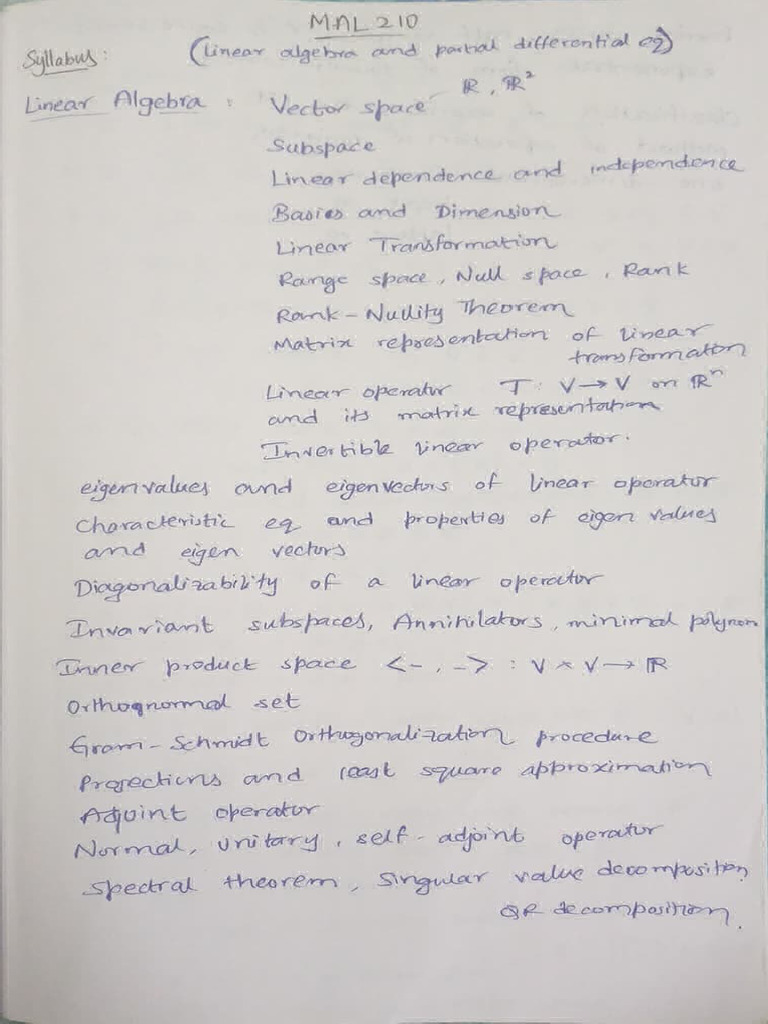 MAL210
Syllabus: (Linear algebra and partial differential eq)
Linear Algebra : Vector space ℝ, ℝ²
Subspace
Linear dependence and independence
Basies and Dimension
Linear Transformation
Range space, Null space, Rank
Rank-Nullity Theorem
Matrix representation of linear
transformation
Linear operator T: V→V on ℝⁿ
and its matrix representation
Invertible linear operator.
eigenvalues and eigenvectors of linear operator
Characteristic eq and properties of eigen values
and eigen vectors
Diagonalizability of a linear operator
Invariant subspaces, Annihilators, minimal polynom
Inner product space <-,-> : V×V→ℝ
Orthognormal set
Gram-Schmidt Orthogonalization procedure
Projections and least square approximation
Adjoint operator
Normal, unitary, self-adjoint operator
Spectral theorem, Singular value decomposition
QR decomposition.